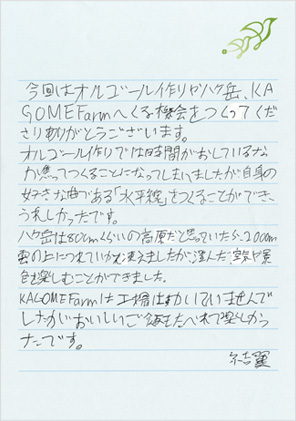 今回はオルゴール作りや八ヶ岳、KA
GOMEFarmへくる機会をつくってくだ
さりありがとうございます。
オルゴール作りでは時間がおしているな
か焦ってつくることになってしまいましたが自身の
好きな曲である「水平線」をつくることができ、
うれしかったです。
八ヶ岳は800mくらいの高原だと思っていたら、2000m
雲の上につれていかれ凍えましたが、澄んだ空や景
色も楽しむことができました。
KAGOMEFarmは工場はかいていませんで
したがおいしいご飯をたべれて楽しかっ
たです。